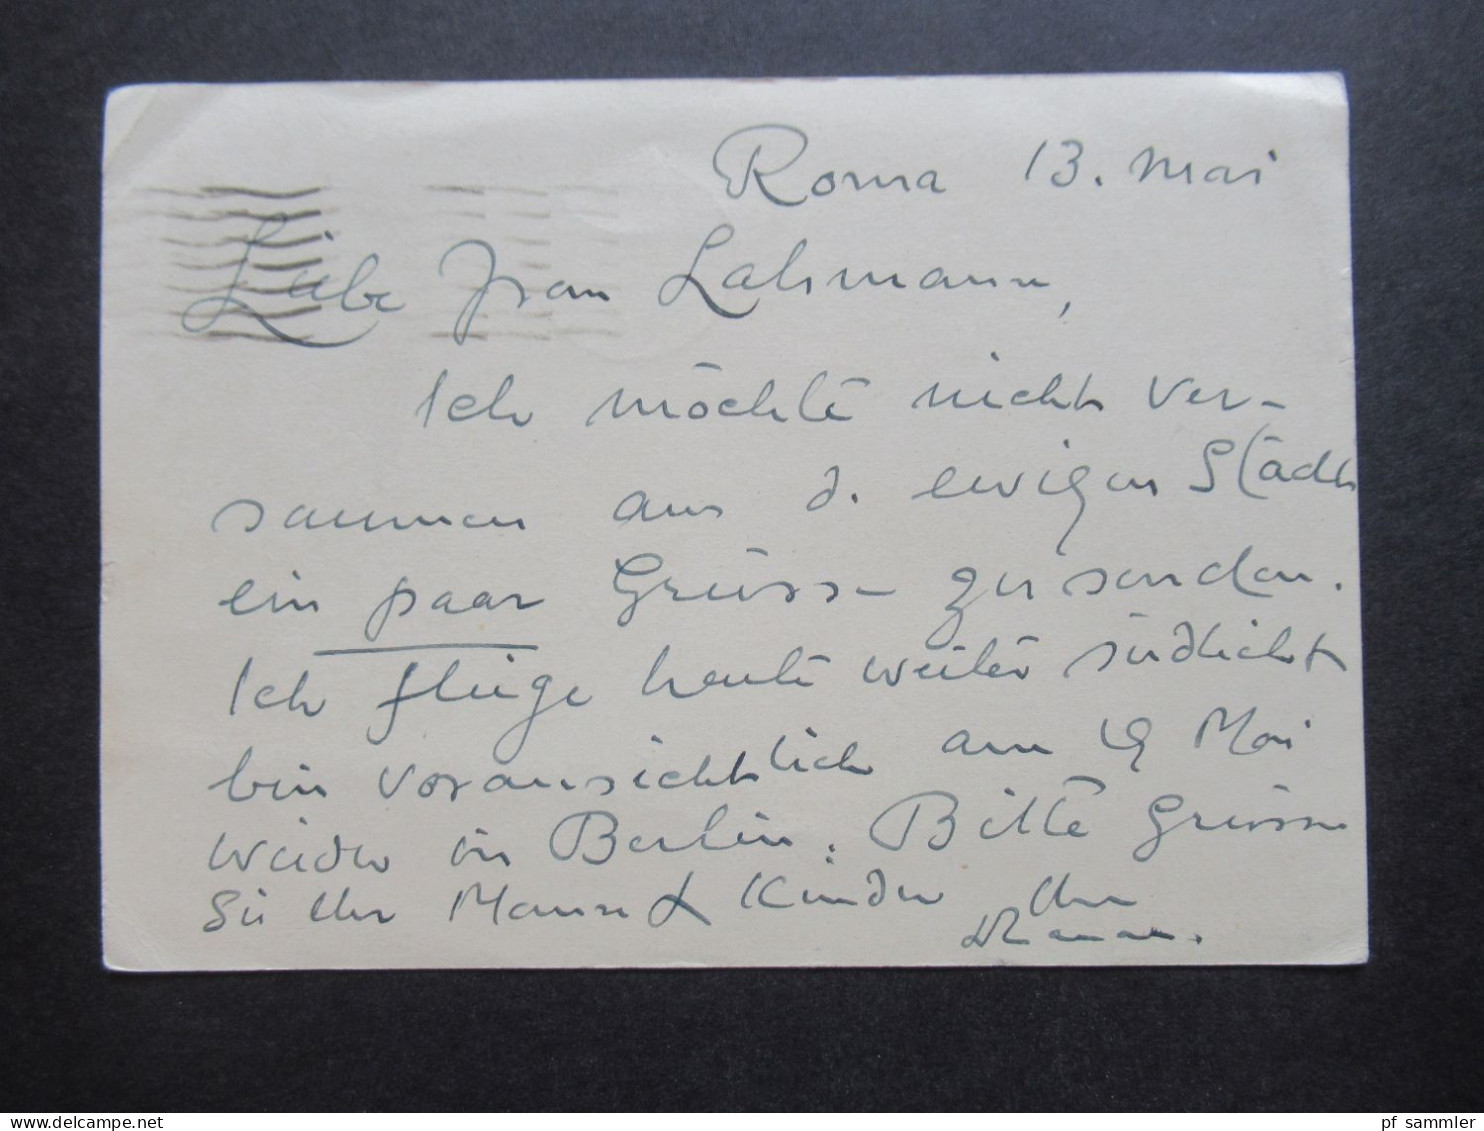 Roma 13. Mai
Liebe Frau Lahmann,
Ich möchte nicht ver-
säumen aus d. ewigen Stadt
ein paar Grüsse zu senden.
Ich fliege heute weiter südlich &
bin voraussichtlich am 19 Mai
wieder in Berlin. Bitte Grüssen
Sie Ihr Mann & Kinder Ihr
pf sammler
delcampe.net